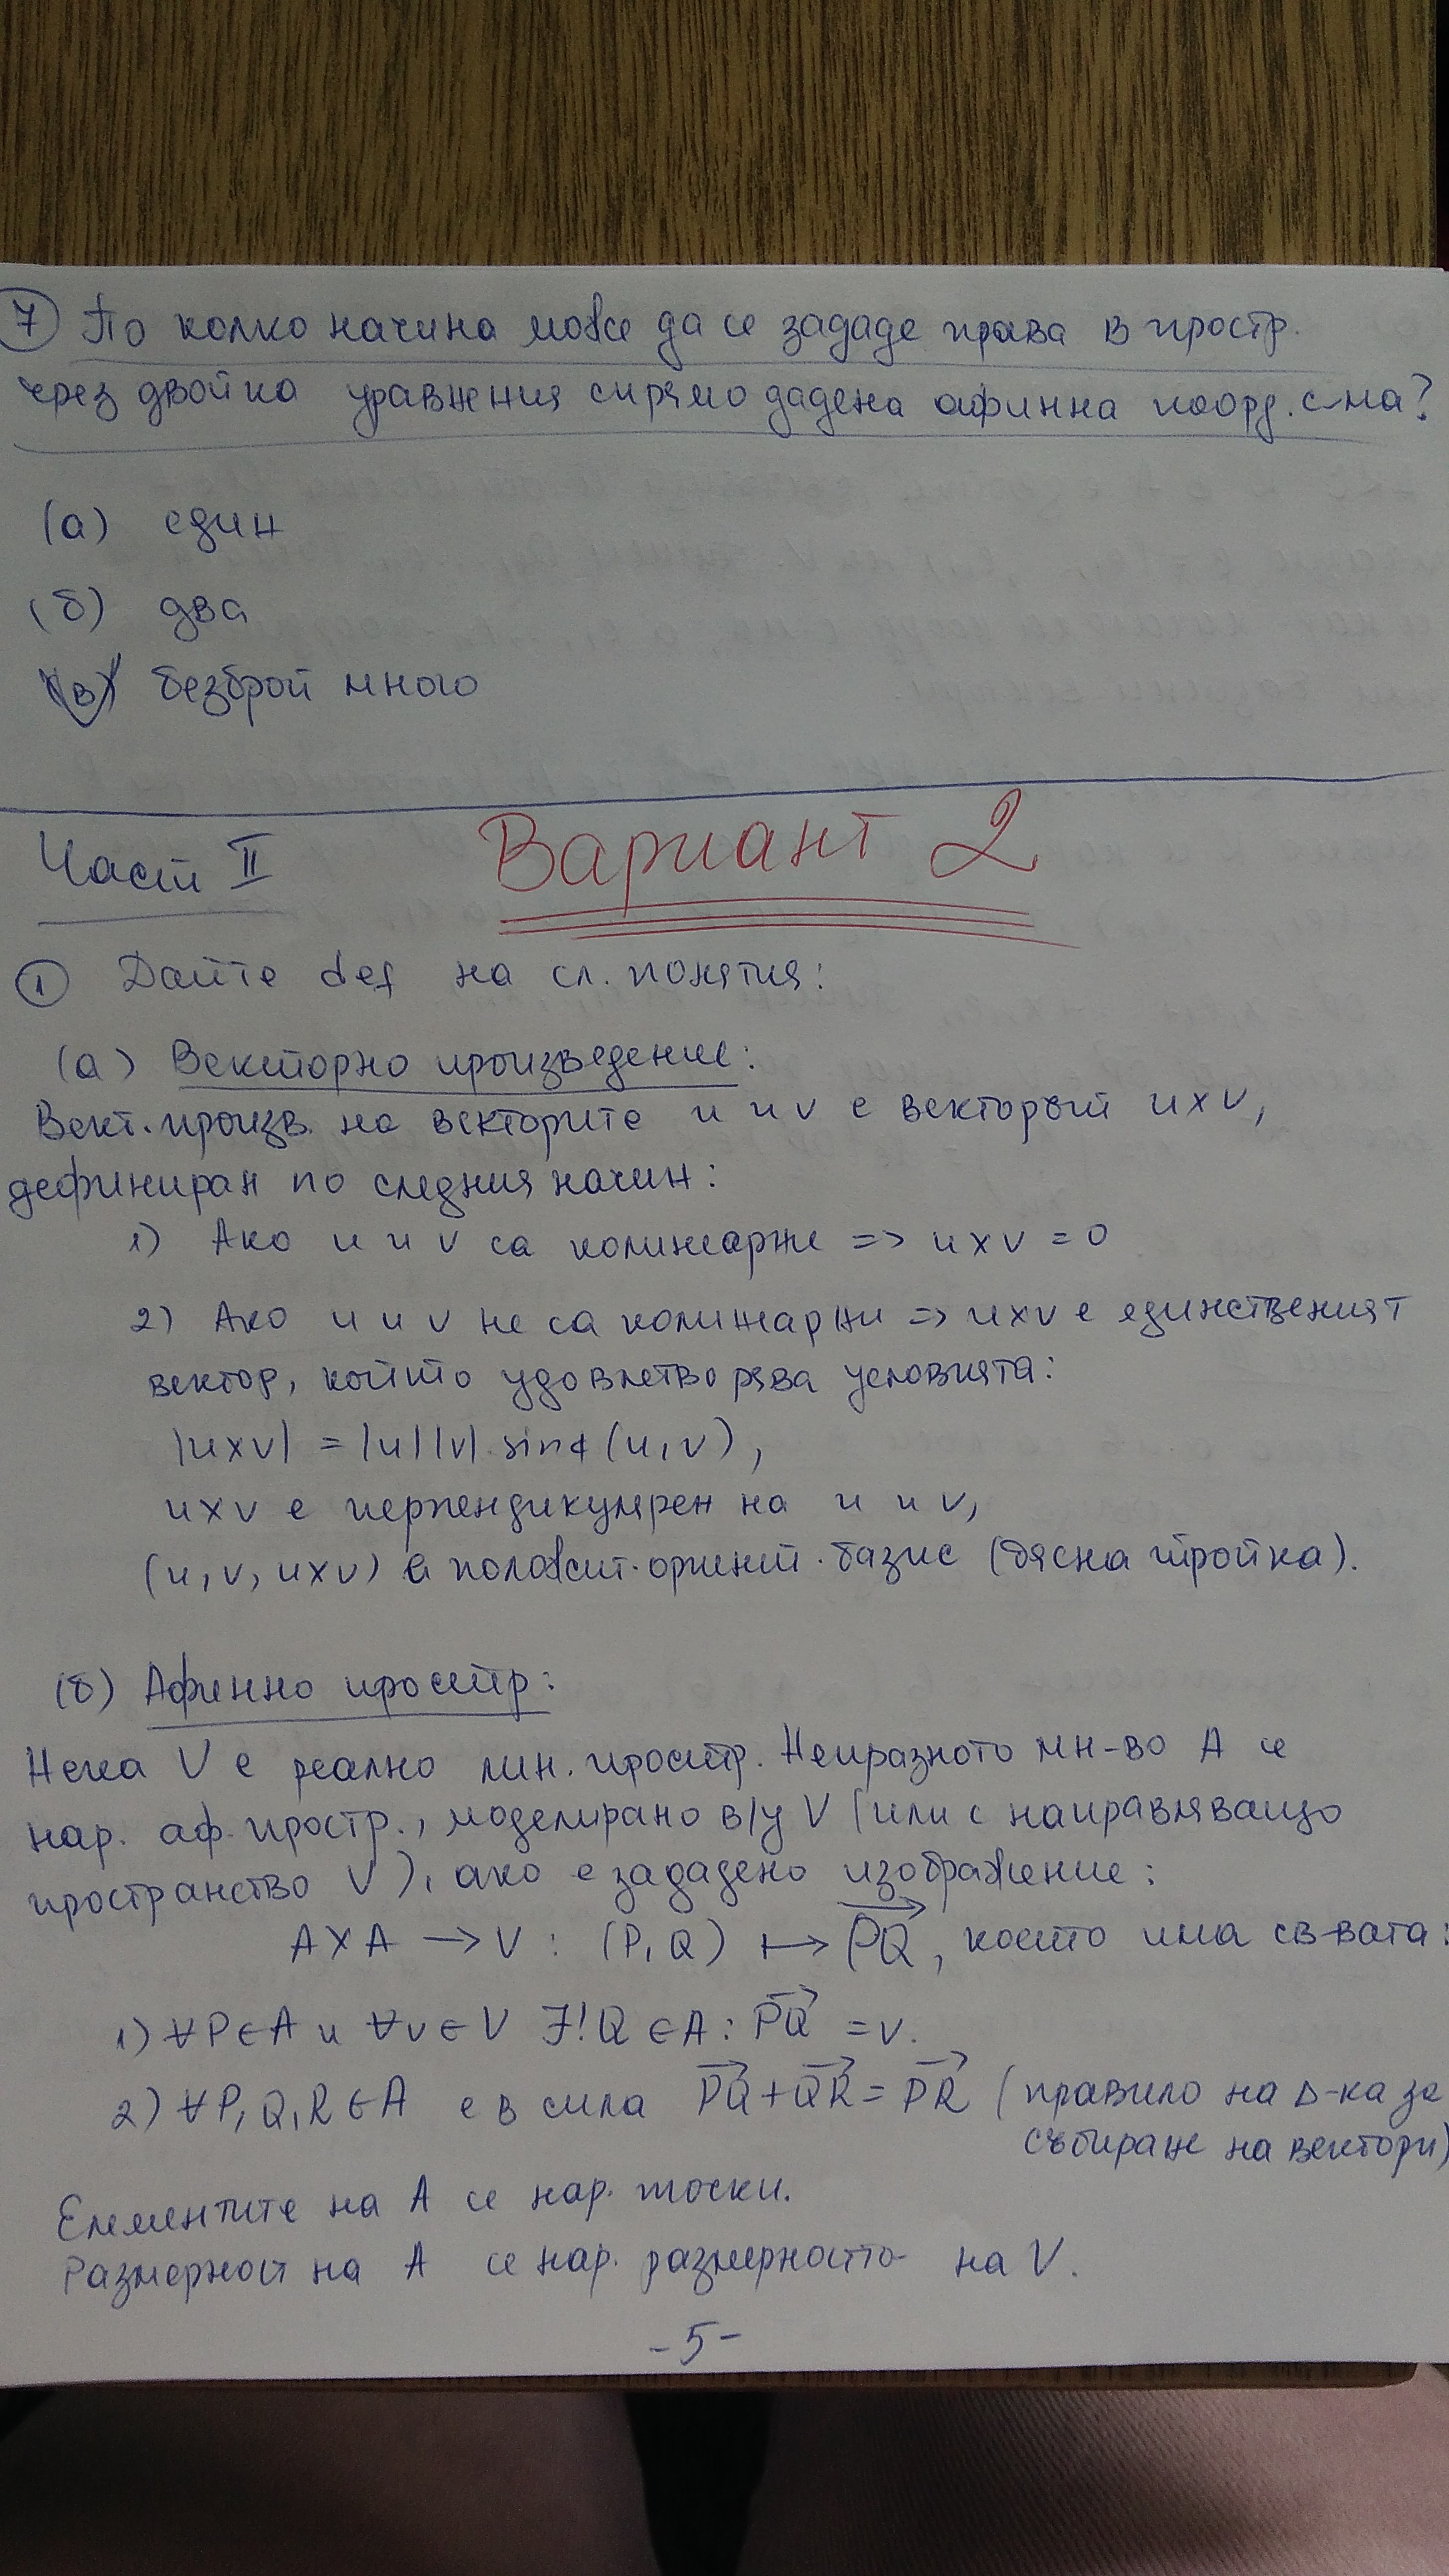 7 По колко начина може да се зададе права в простр.
чрез двойка уравнения спрямо дадена афинна коорд. с-ма?
(а) един
(б) два
(в) безброй много
Част II Вариант 2
1 Дайте def на сл. понятия:
(а) Векторно произведение:
Вект. произв. на векторите u и v е векторът u x v,
дефиниран по следния начин:
1) Ако u и v са колинеарни => u x v = 0
2) Ако u и v не са колинеарни => u x v е единственият
вектор, който удовлетворява условията:
|u x v| = |u||v|.sin∢(u, v),
u x v е перпендикулярен на u и v,
(u, v, u x v) е положит. ориент. базис (дясна тройка).
(б) Афинно простр:
Нека V е реално лин. простр. Непразното мн-во A се
нар. аф. простр., моделирано в/у V (или с направляващо
пространство V), ако е зададено изображение:
A X A → V : (P, Q) ↦ PQ→, което има св-вата:
1) ∀P∈A и ∀v∈V ∃!Q∈A : PQ→ = v.
2) ∀P, Q, R∈A е в сила PQ→ + QR→ = PR→ (правило на Δ-ка за
събиране на вектори)
Елементите на A се нар. точки.
Размерност на A се нар. размерността на V.
-5-